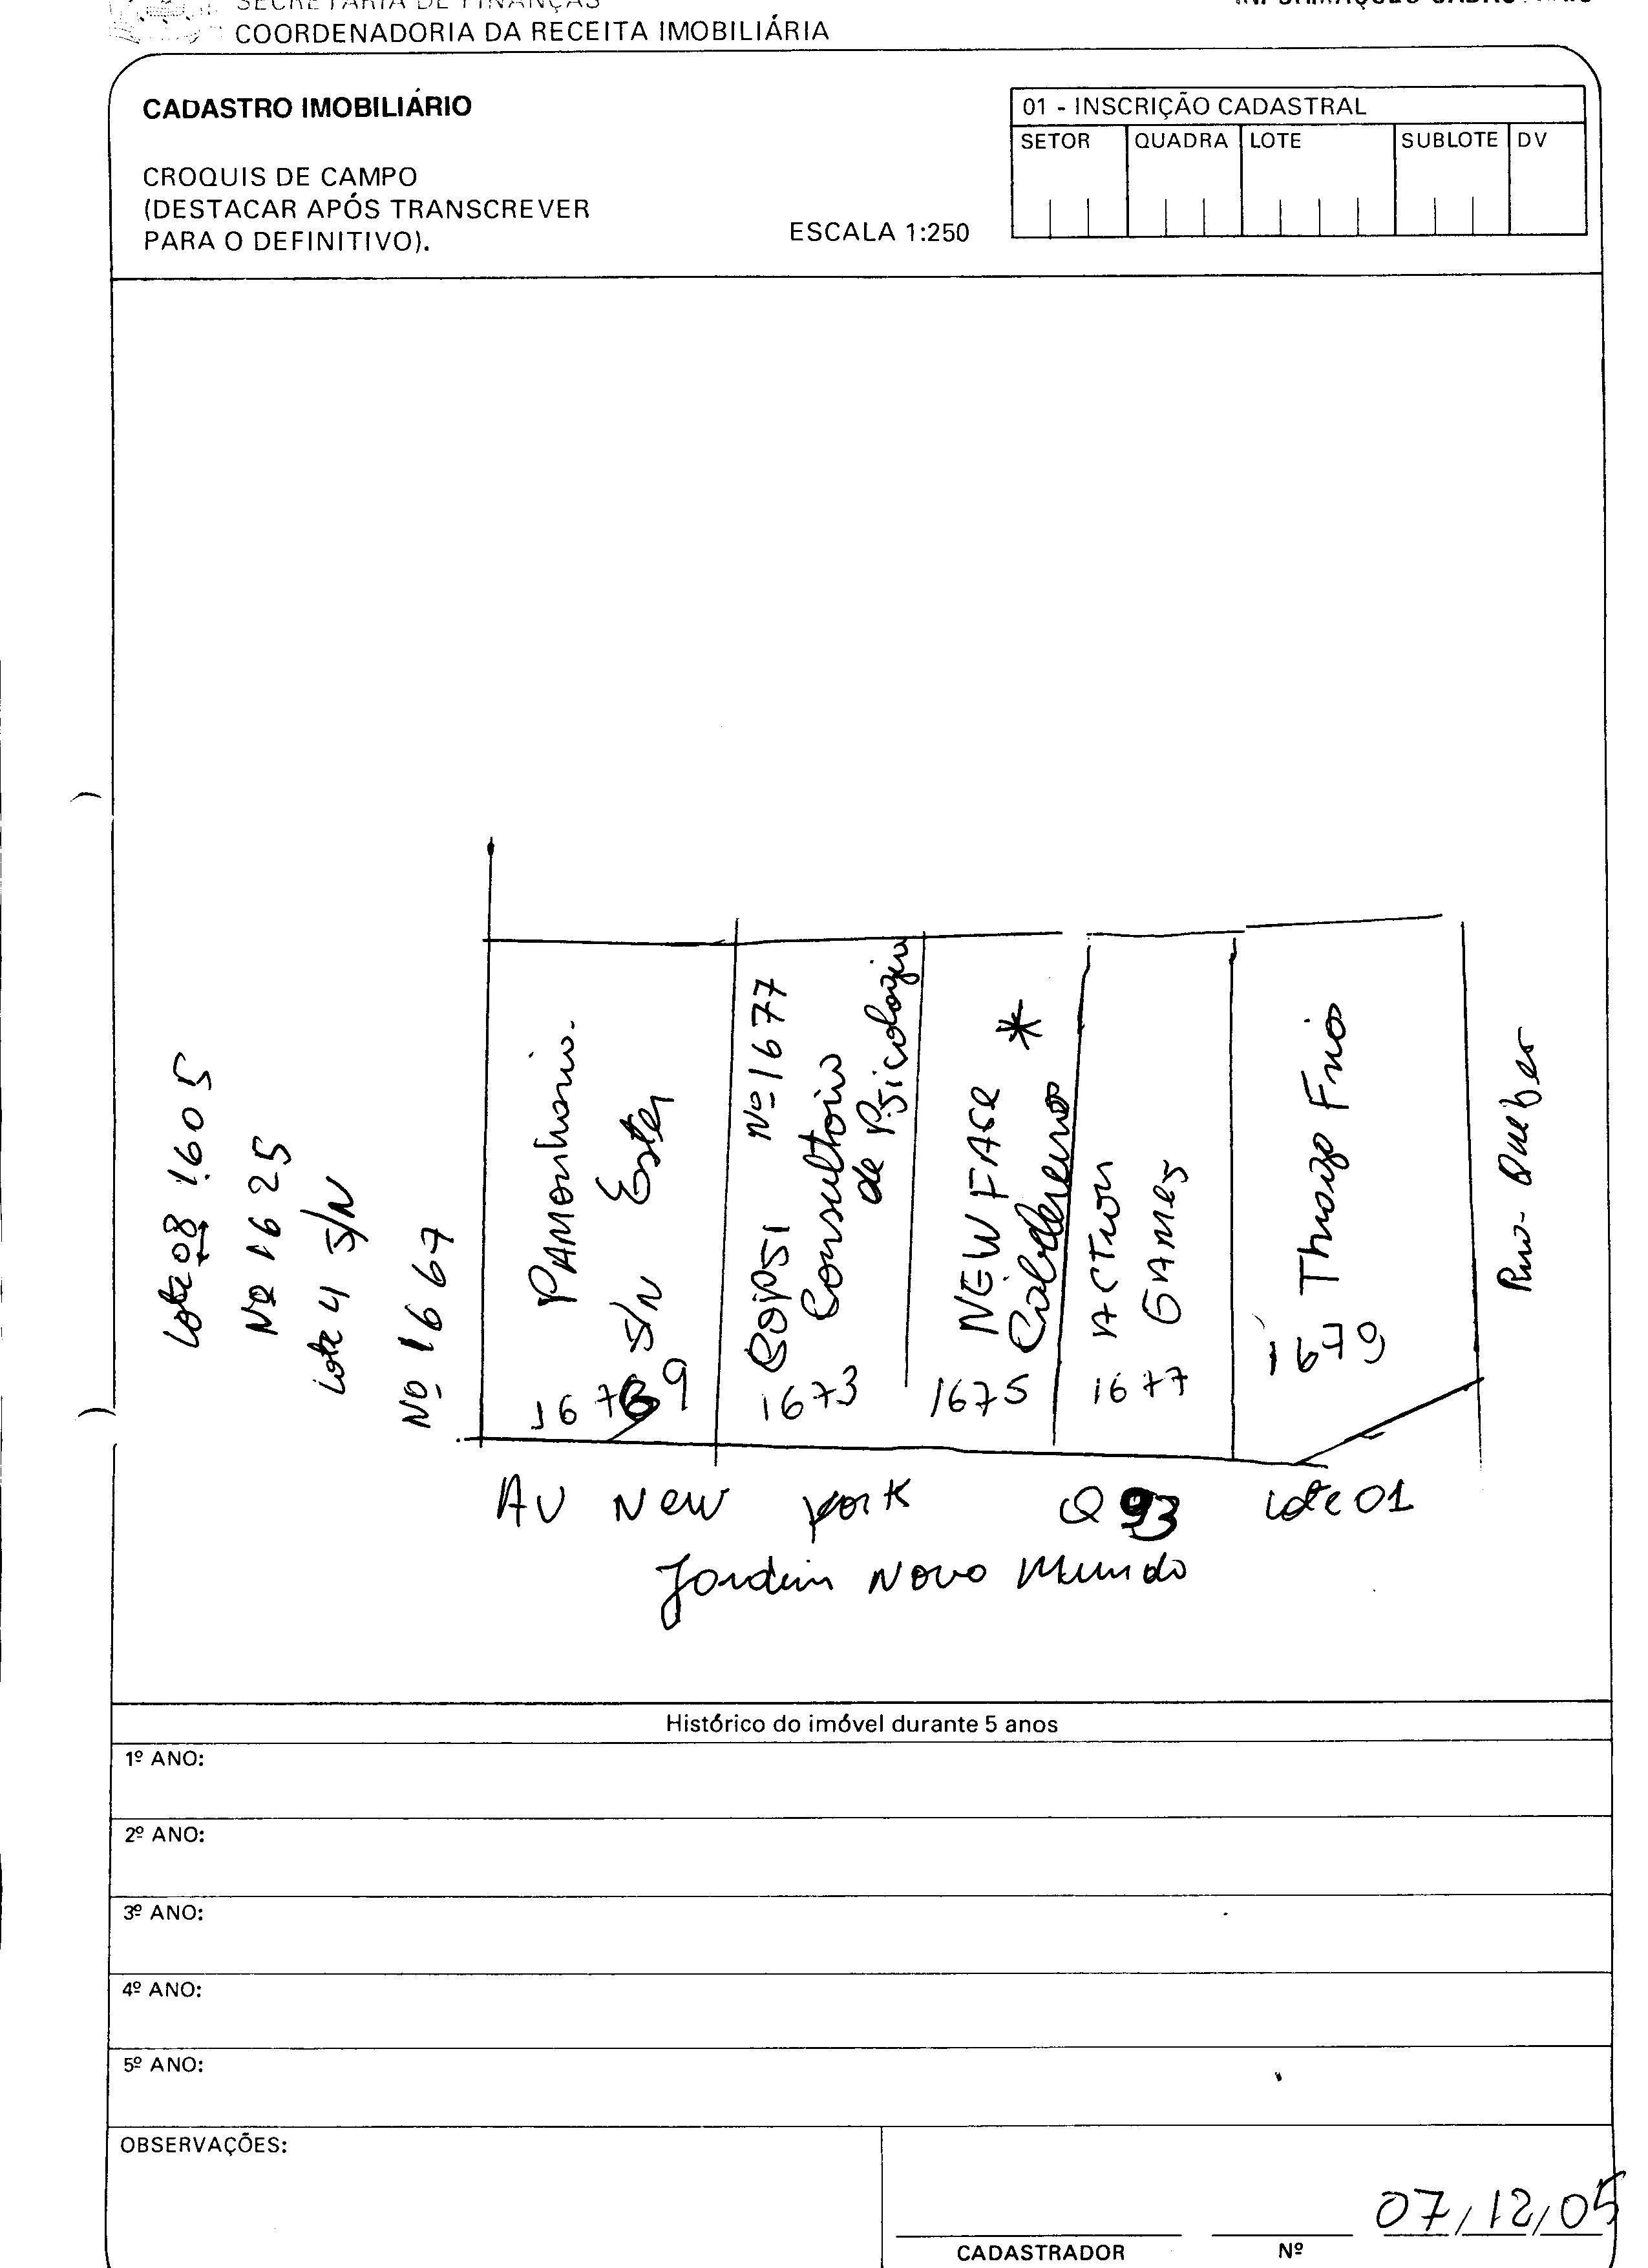 SECRETARIA DE FINANÇAS
COORDENADORIA DA RECEITA IMOBILIÁRIA
INFORMAÇÕES CADASTRAIS
CADASTRO IMOBILIÁRIO
CROQUIS DE CAMPO
(DESTACAR APÓS TRANSCREVER
PARA O DEFINITIVO).
ESCALA 1:250
01 - INSCRIÇÃO CADASTRAL
SETOR QUADRA LOTE SUBLOTE DV
Lote 08 1605
Nº 1625
Lote 4 S/N
Nº 1667
Pamonharia
S/N Ester
Nº 1677
Consultorio
de Psicologia
1673
NEW FASE *
Cabeleireiros
1675
ACTION
GAMES
1677
Thiago Frios
1679
Rua Quebec
AV New York Q 93 Lote 01
Jardim Novo Mundo
Histórico do imóvel durante 5 anos
1º ANO:
2º ANO:
3º ANO:
4º ANO:
5º ANO:
OBSERVAÇÕES:
07/12/05
CADASTRADOR Nº